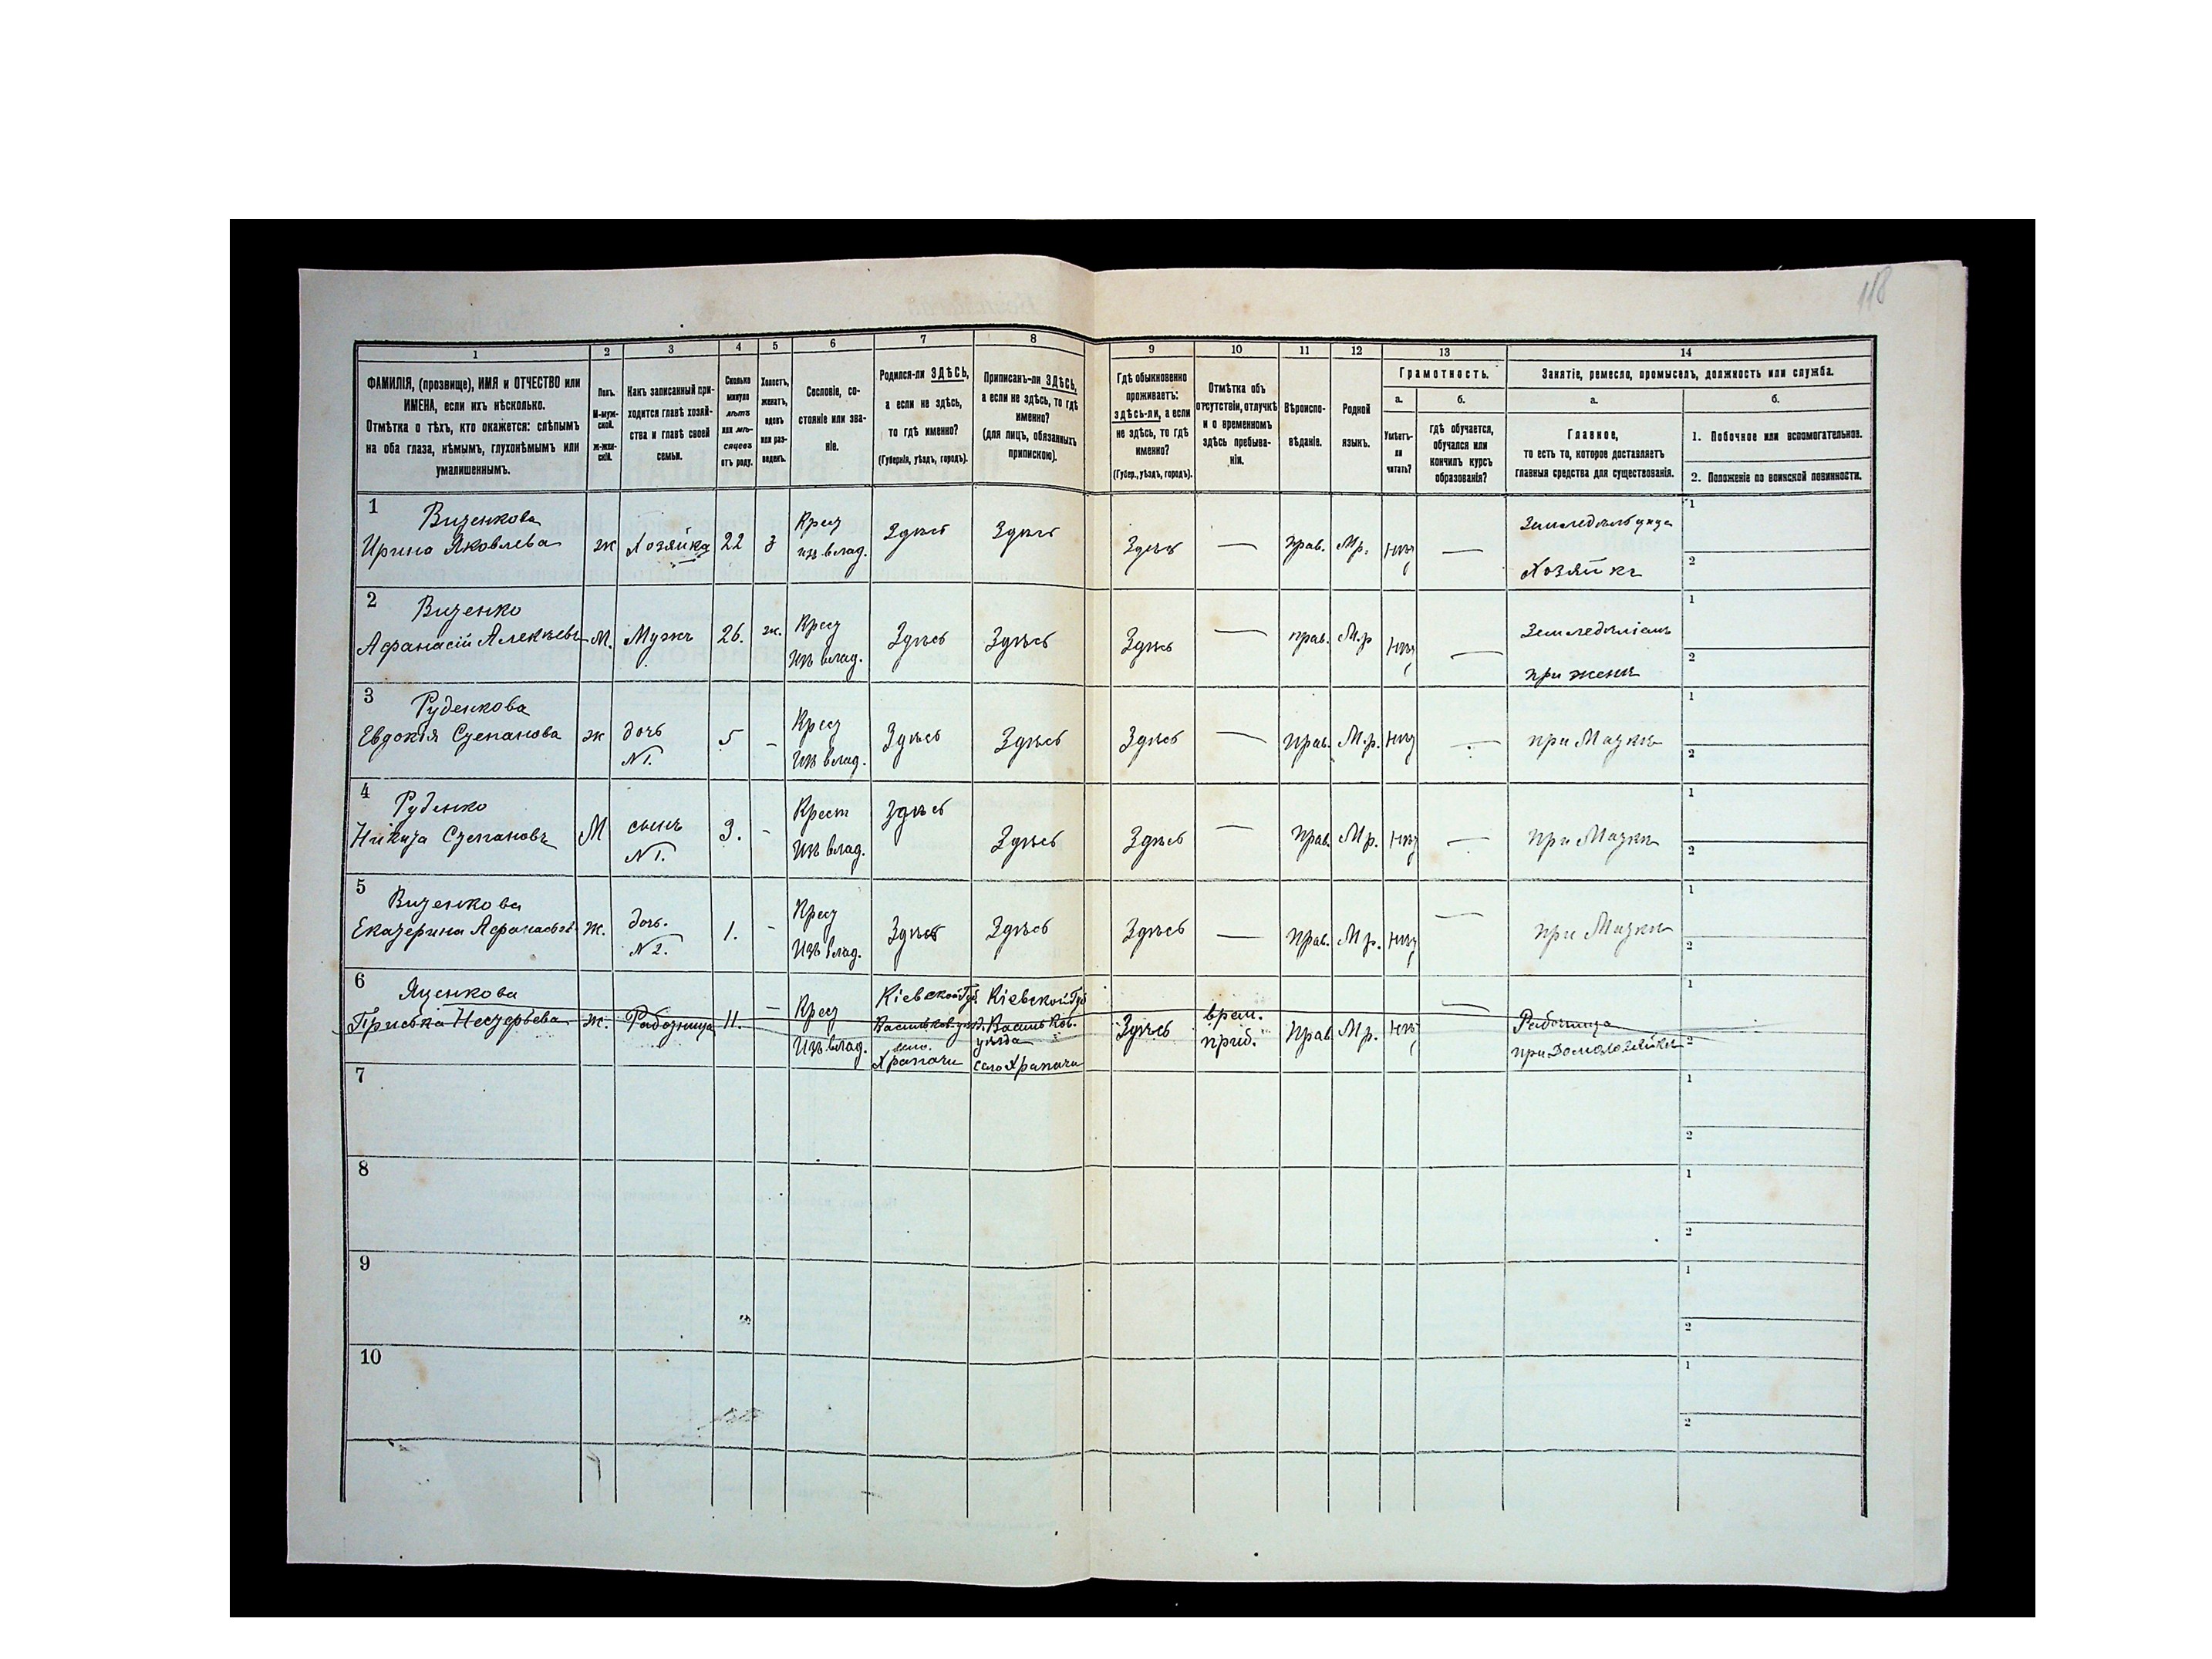 118
1
2
3
4
5
6
7
8
9
10
11
12
13
14
ФАМИЛІЯ, (прозвище), ИМЯ и ОТЧЕСТВО или
ИМЕНА, если ихъ нѣсколько.
Отмѣтка о тѣхъ, кто окажется: слѣпымъ
на оба глаза, нѣмымъ, глухонѣмымъ или
умалишеннымъ.
Полъ.
М-муж-
ской.
Ж-жен-
скій.
Какъ записанный при-
ходится главѣ хозяй-
ства и главѣ своей
семьи.
Сколько
минуло
лѣтъ
или мѣ-
сяцевъ
отъ роду.
Холостъ,
женатъ,
вдовъ
или раз-
веденъ.
Сословіе, со-
стояніе или зва-
ніе.
Родился-ли ЗДѢСЬ,
а если не здѣсь,
то гдѣ именно?
(Губернія, уѣздъ, городъ).
Приписанъ-ли ЗДѢСЬ,
а если не здѣсь, то гдѣ
именно?
(для лицъ, обязанныхъ
припискою).
Гдѣ обыкновенно
проживаетъ:
здѣсь-ли, а если
не здѣсь, то гдѣ
именно?
(Губер., уѣздъ, городъ).
Отмѣтка объ
отсутствіи, отлучкѣ
и о временномъ
здѣсь пребыва-
ніи.
Вѣроиспо-
вѣданіе.
Родной
языкъ.
Грамотность.
а.
Умѣетъ-
ли
читать?
б.
гдѣ обучается,
обучался или
кончилъ курсъ
образованія?
Занятіе, ремесло, промыселъ, должность или служба.
а.
Главное,
то есть то, которое доставляетъ
главныя средства для существованія.
б.
1. Побочное или вспомогательное.
2. Положеніе по воинской повинности.
1
Виценкова
Ирина Яковлева
ж
Хозяйка
22
з
Крест
изъ влад.
Здѣсь
Здѣсь
Здѣсь
—
прав.
М.р.
нѣт
—
Хозяйкѣ
1
2
2
Виценко
Афанасій Алексѣевъ
М.
Мужъ
26.
ж.
Крест
Изъ влад.
Здѣсь
Здѣсь
Здѣсь
—
прав.
М.р
нѣт
—
Земледѣліемъ
при женѣ
1
2
3
Руденкова
Евдокія Степанова
ж
дочь
№ 1.
5
-
Крест
Изъ влад.
Здѣсь
Здѣсь
Здѣсь
—
Прав.
М.р.
нѣт
—
при Маткѣ
1
2
4
Руденко
Никита Степановъ
М
сынъ
№ 1.
3.
-
Крест
Изъ влад.
Здѣсь
Здѣсь
Здѣсь
—
Прав.
М.р.
нѣт
—
при Маткѣ
1
2
5
Виценкова
Екатерина Афанасьев
ж.
дочь.
№ 2.
1.
-
Крест
Изъ влад.
Здѣсь
Здѣсь
Здѣсь
—
Прав.
М.р.
нѣт
—
при Маткѣ
1
2
6
Яценкова
Приська Нестерьева
ж.
Работница
11.
—
Крест
Изъ влад.
Кіевской Губ.
Васильков. уѣзд.
село.
Храпачи
Кіевской Губ
Васильков.
уѣзда
село Храпачи
Здѣсь
врем.
приб.
Прав
М.р.
нѣт
—
Работница
при Домохозяйкѣ
1
2
7
1
2
8
1
2
9
1
2
10
1
2